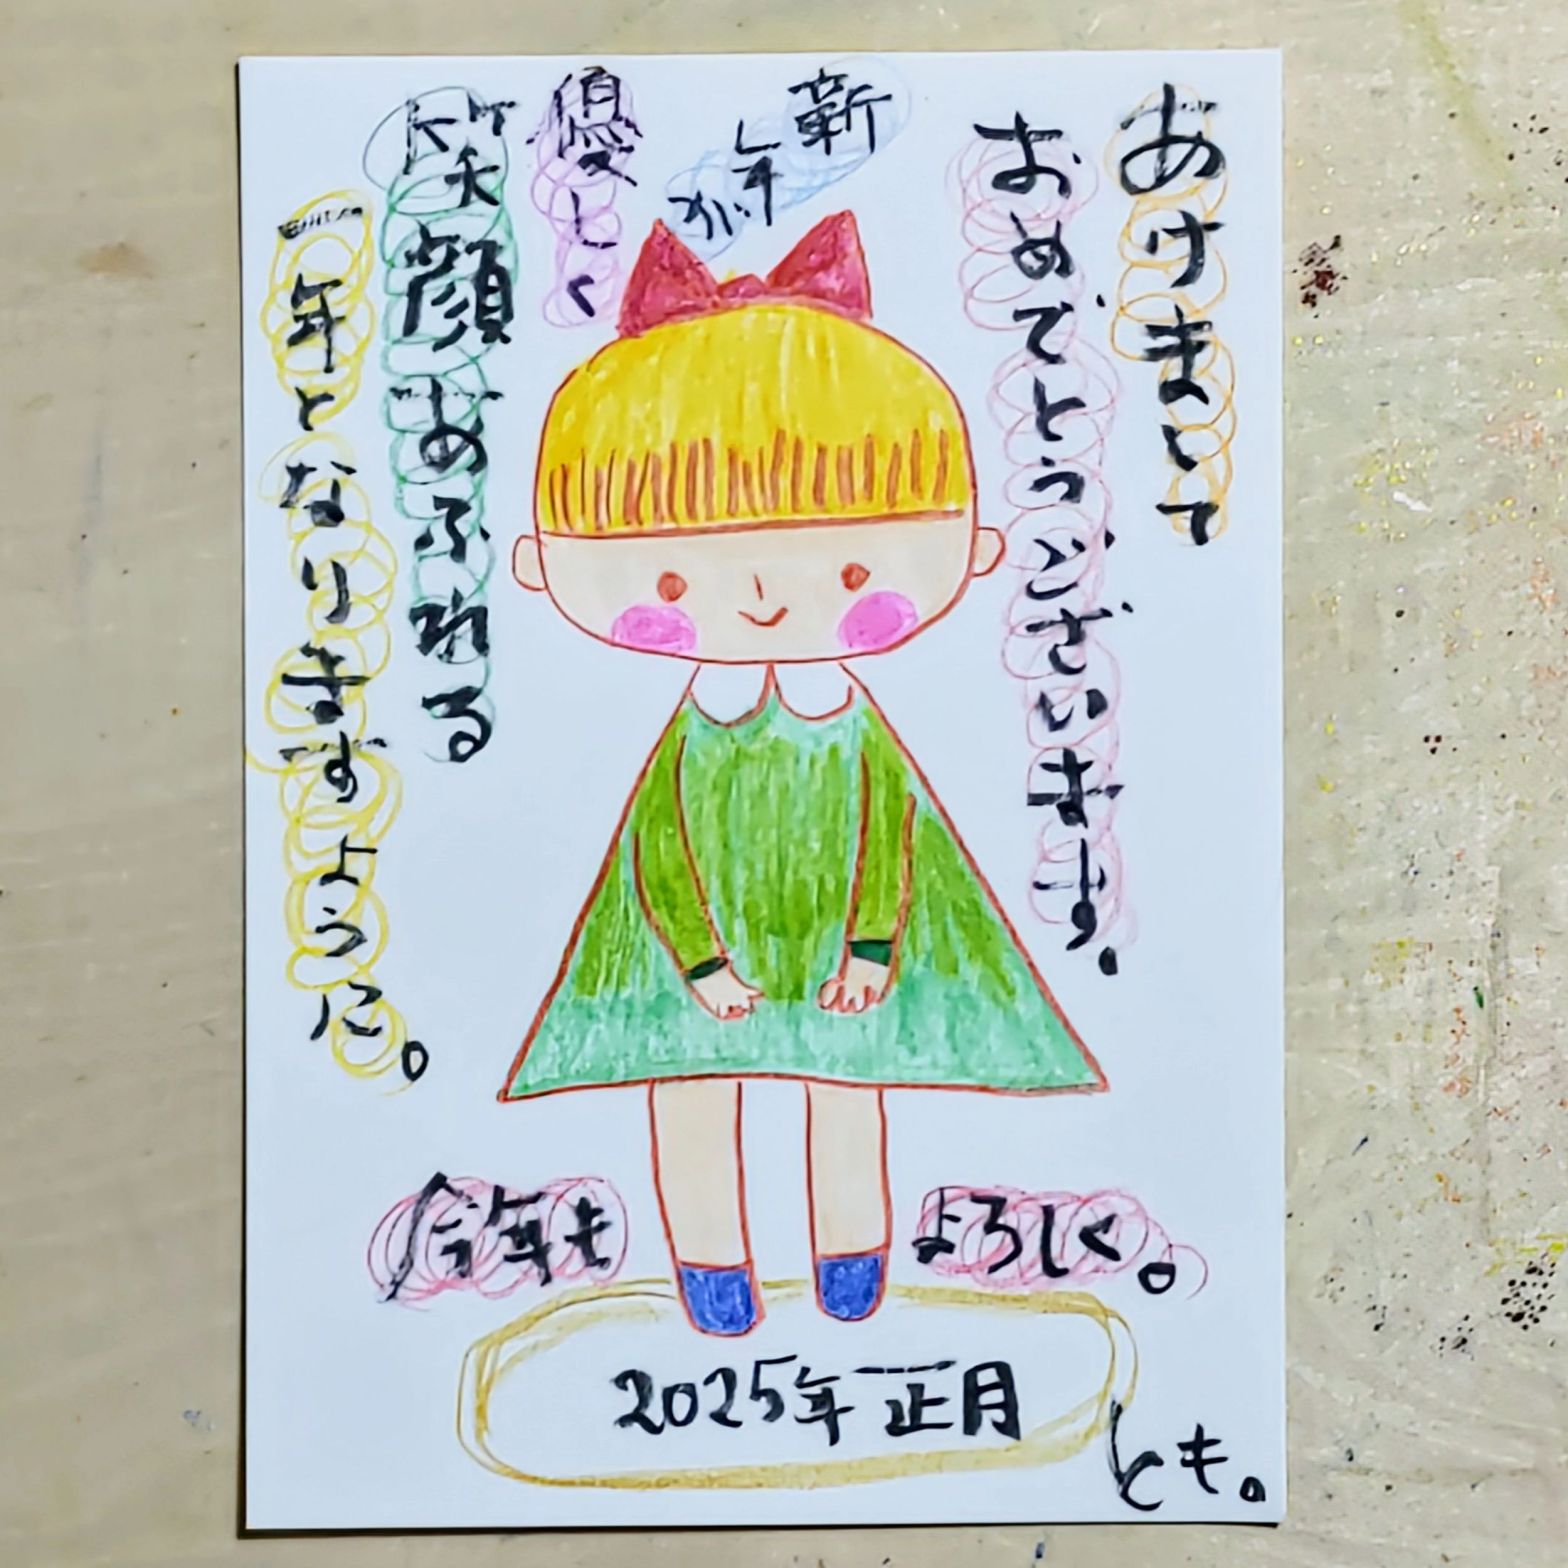 あけまして
おめでとうございます。
新年が
優しく
笑顔あふれる
一年となりますように。
今年も
よろしく。
2025年正月
とも。